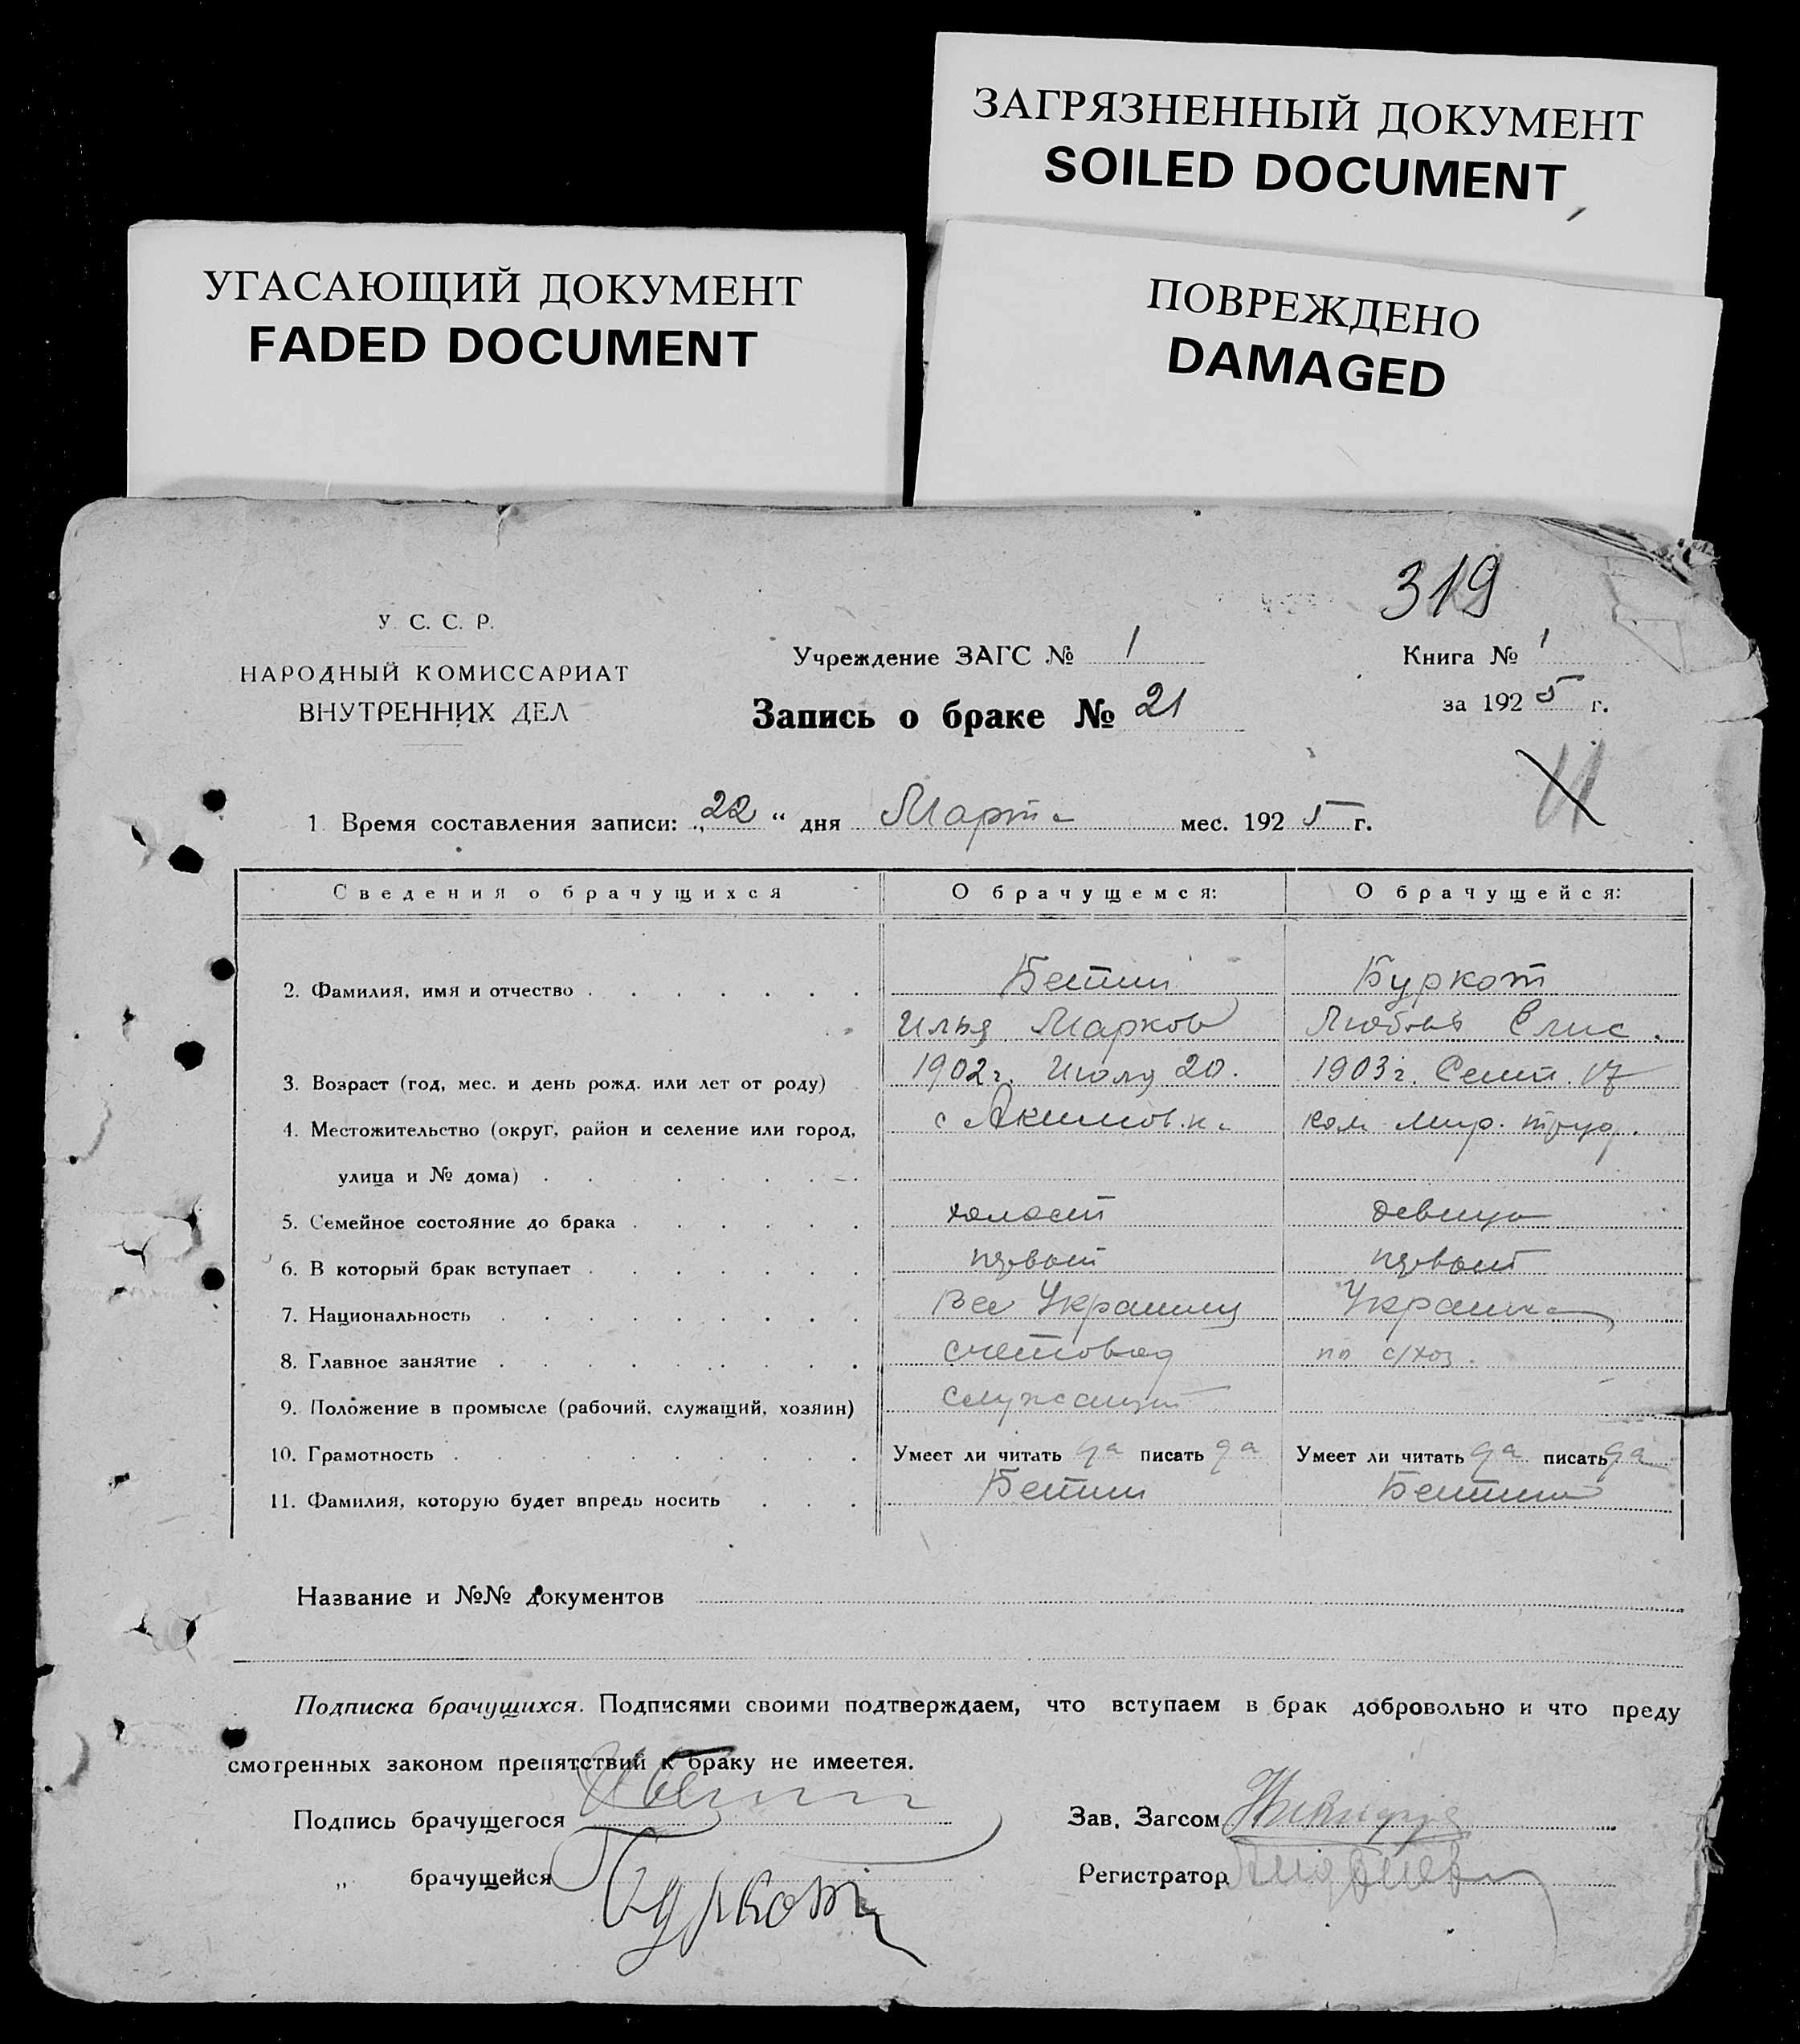 ЗАГРЯЗНЕННЫЙ ДОКУМЕНТ
SOILED DOCUMENT
УГАСАЮЩИЙ ДОКУМЕНТ
FADED DOCUMENT
ПОВРЕЖДЕНО
DAMAGED
319
У. С. С. Р.
НАРОДНЫЙ КОМИССАРИАТ
ВНУТРЕННИХ ДЕЛ
Учреждение ЗАГС № 1
Запись о браке № 21
Книга № 1
за 1925 г.
1. Время составления записи: „22“ дня Марта мес. 1925 г.
Сведения о брачущихся О брачущемся: О брачущейся:
2. Фамилия, имя и отчество Бетин Буркот
Илья Марков Любовь Елис.
3. Возраст (год, мес. и день рожд. или лет от роду) 1902 г. Июля 20. 1903 г. Сент. 17
4. Местожительство (округ, район и селение или город, с Акимовка кол. мир. труд.
улица и № дома)
5. Семейное состояние до брака холост девица
6. В который брак вступает первый первый
7. Национальность Украинец Украинка
8. Главное занятие счетовод по с/хоз.
9. Положение в промысле (рабочий, служащий, хозяин) служащий
10. Грамотность Умеет ли читать да писать да Умеет ли читать да писать да
11. Фамилия, которую будет впредь носить Бетин Бетина
Название и №№ документов
Подписка брачущихся. Подписями своими подтверждаем, что вступаем в брак добровольно и что преду
смотренных законом препятствий к браку не имеется.
Подпись брачущегося
„ брачущейся Буркот
Зав. Загсом
Регистратор